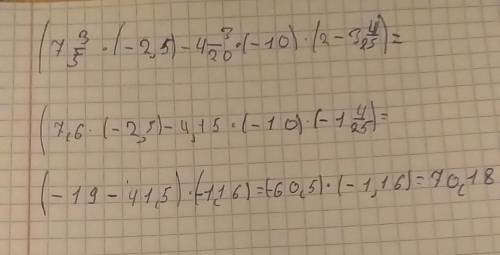 (7 3/5 · (-2,5) - 4 3/20 · (-10) · (2 - 3 4/25) =
(7,6 · (-2,5) - 4,15 · (-10) · (-1 4/25) =
(-19 - 41,5) · (-1,16) = (-60,5) · (-1,16) = 70,18